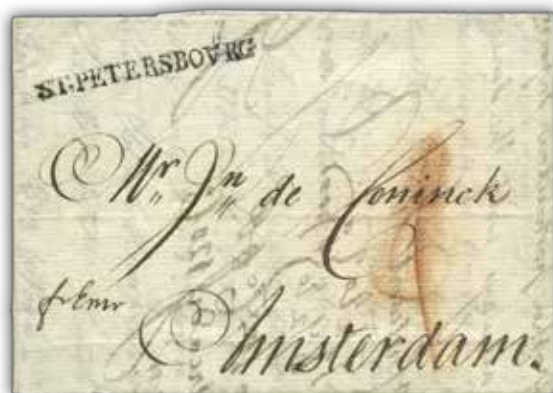 ST. PETERSBOURG
Mr Jn de Coninck
fr Emr
Amsterdam.